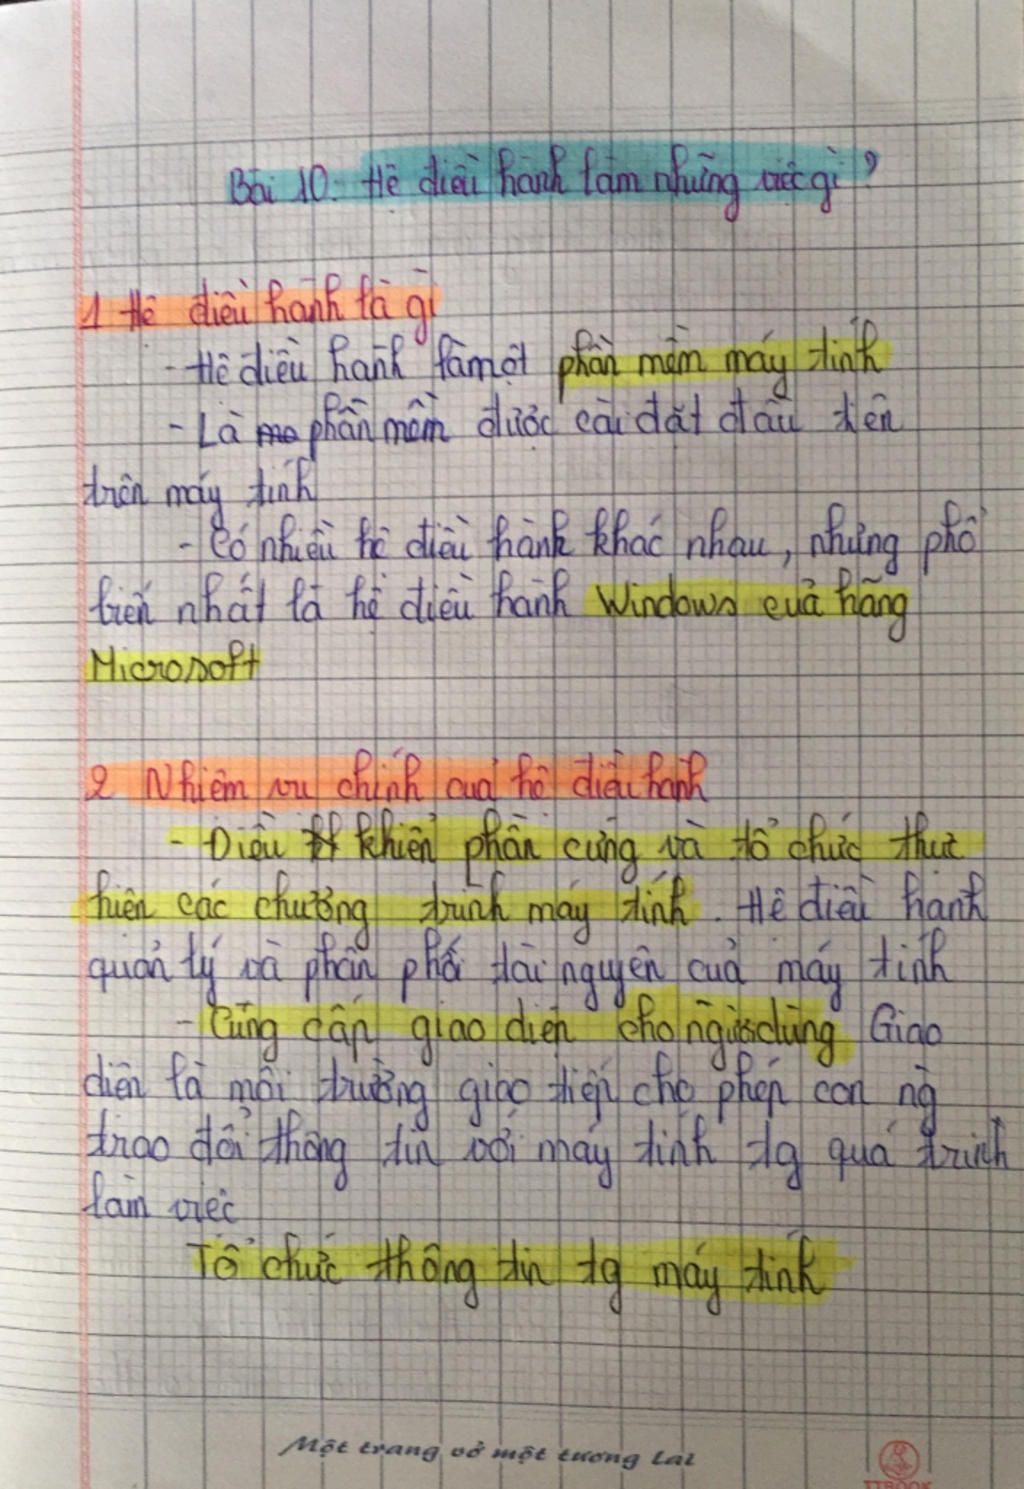 Bài 10: Hệ điều hành làm những việc gì?
1 Hệ điều hành là gì
- Hệ điều hành là một phần mềm máy tính
- Là phần mềm được cài đặt đầu tiên
trên máy tính
- Có nhiều hệ điều hành khác nhau, nhưng phổ
biến nhất là hệ điều hành Windows của hãng
Microsoft
2 Nhiệm vụ chính của hệ điều hành
- Điều khiển phần cứng và tổ chức thực
hiện các chương trình máy tính. Hệ điều hành
quản lý và phân phối tài nguyên của máy tính
- Cung cấp giao diện cho người dùng Giao
diện là môi trường giao tiếp cho phép con ng
trao đổi thông tin với máy tính tg quá trình
làm việc
Tổ chức thông tin tg máy tính
Một trang vở một tương lai
TTBOOK